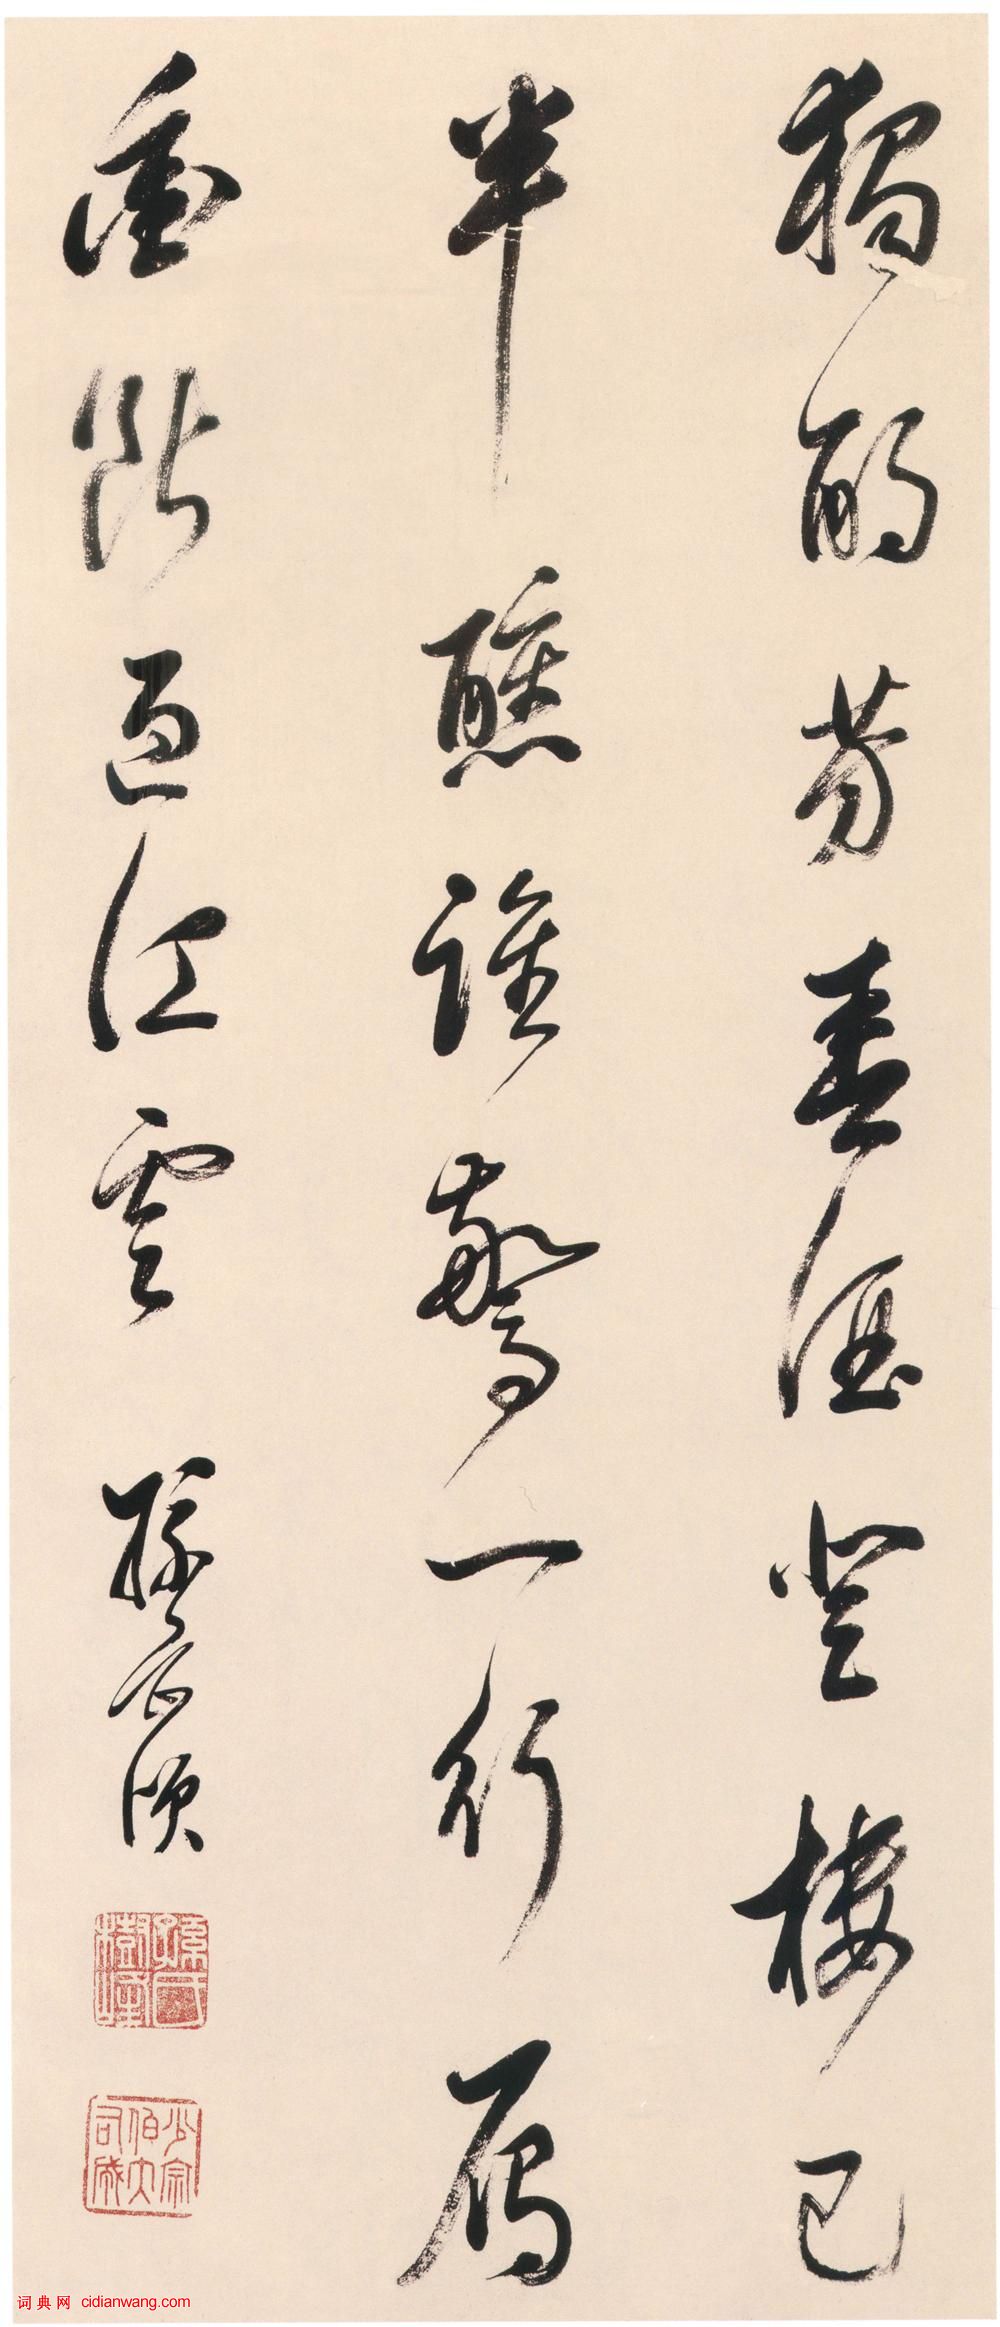 獨酌芳春酒登樓已
半醺誰驚一行鴈
衝斷過江雲 孫岳頒
少宗伯大司成
词典网 cidianwang.com